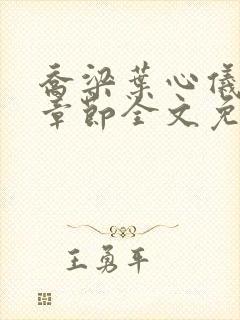 乔梁叶心仪
章节全文免
王勇平